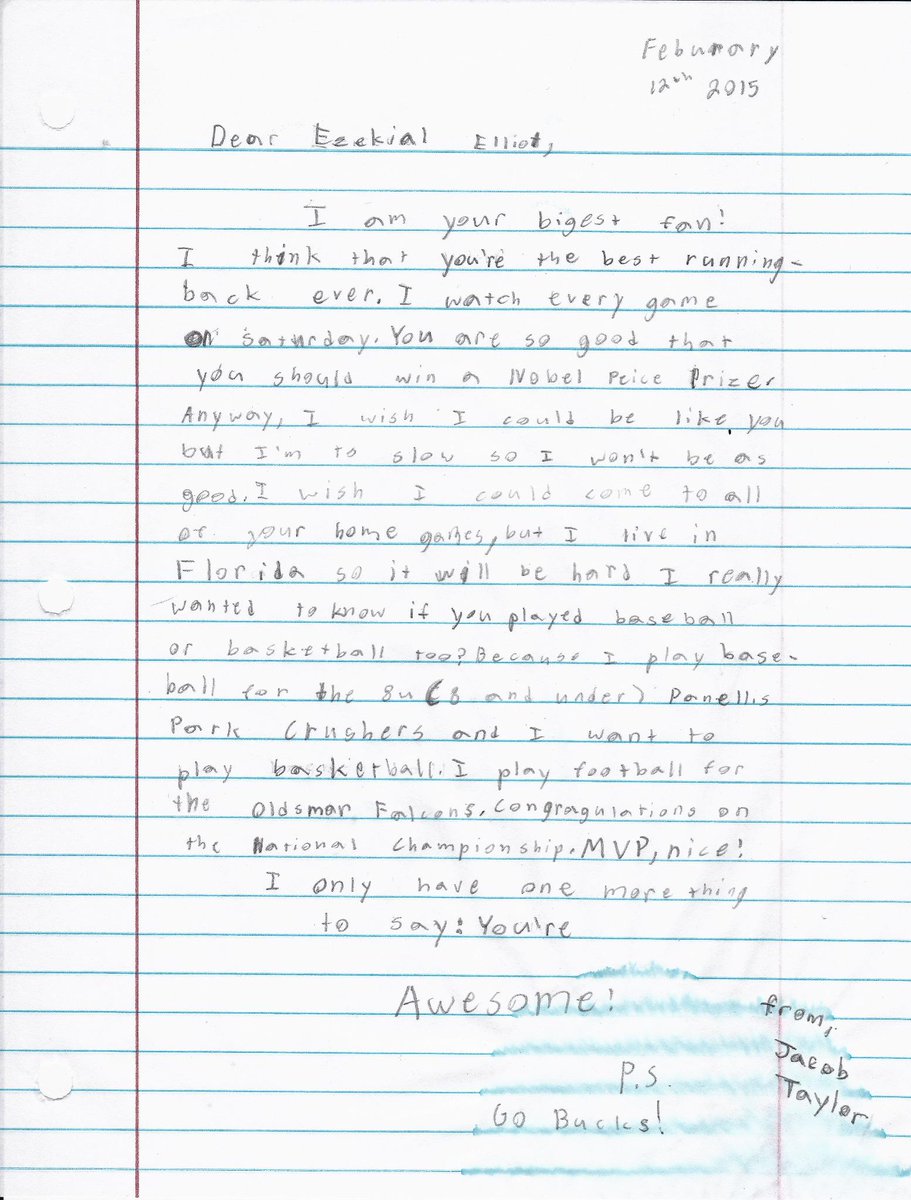 Feburary
12th 2015
Dear Ezekial Elliot,
I am your bigest fan!
I think that you're the best running-
back ever. I watch every game
on Saturday. You are so good that
you should win a Nobel Peice Prizer
Anyway, I wish I could be like you
but I'm to slow so I won't be as
good. I wish I could come to all
of your home games, but I live in
Florida so it will be hard I really
wanted to know if you played baseball
or basketball too? Because I play base-
ball for the 8u (8 and under) Panellis
Park Crushers and I want to
play basketball. I play football for
the Oldsmar Falcons. Congragulations on
the National Championship. MVP, nice!
I only have one more thing
to say: You're
Awesome!
from,
Jacob
Taylor
P.S.
Go Bucks!